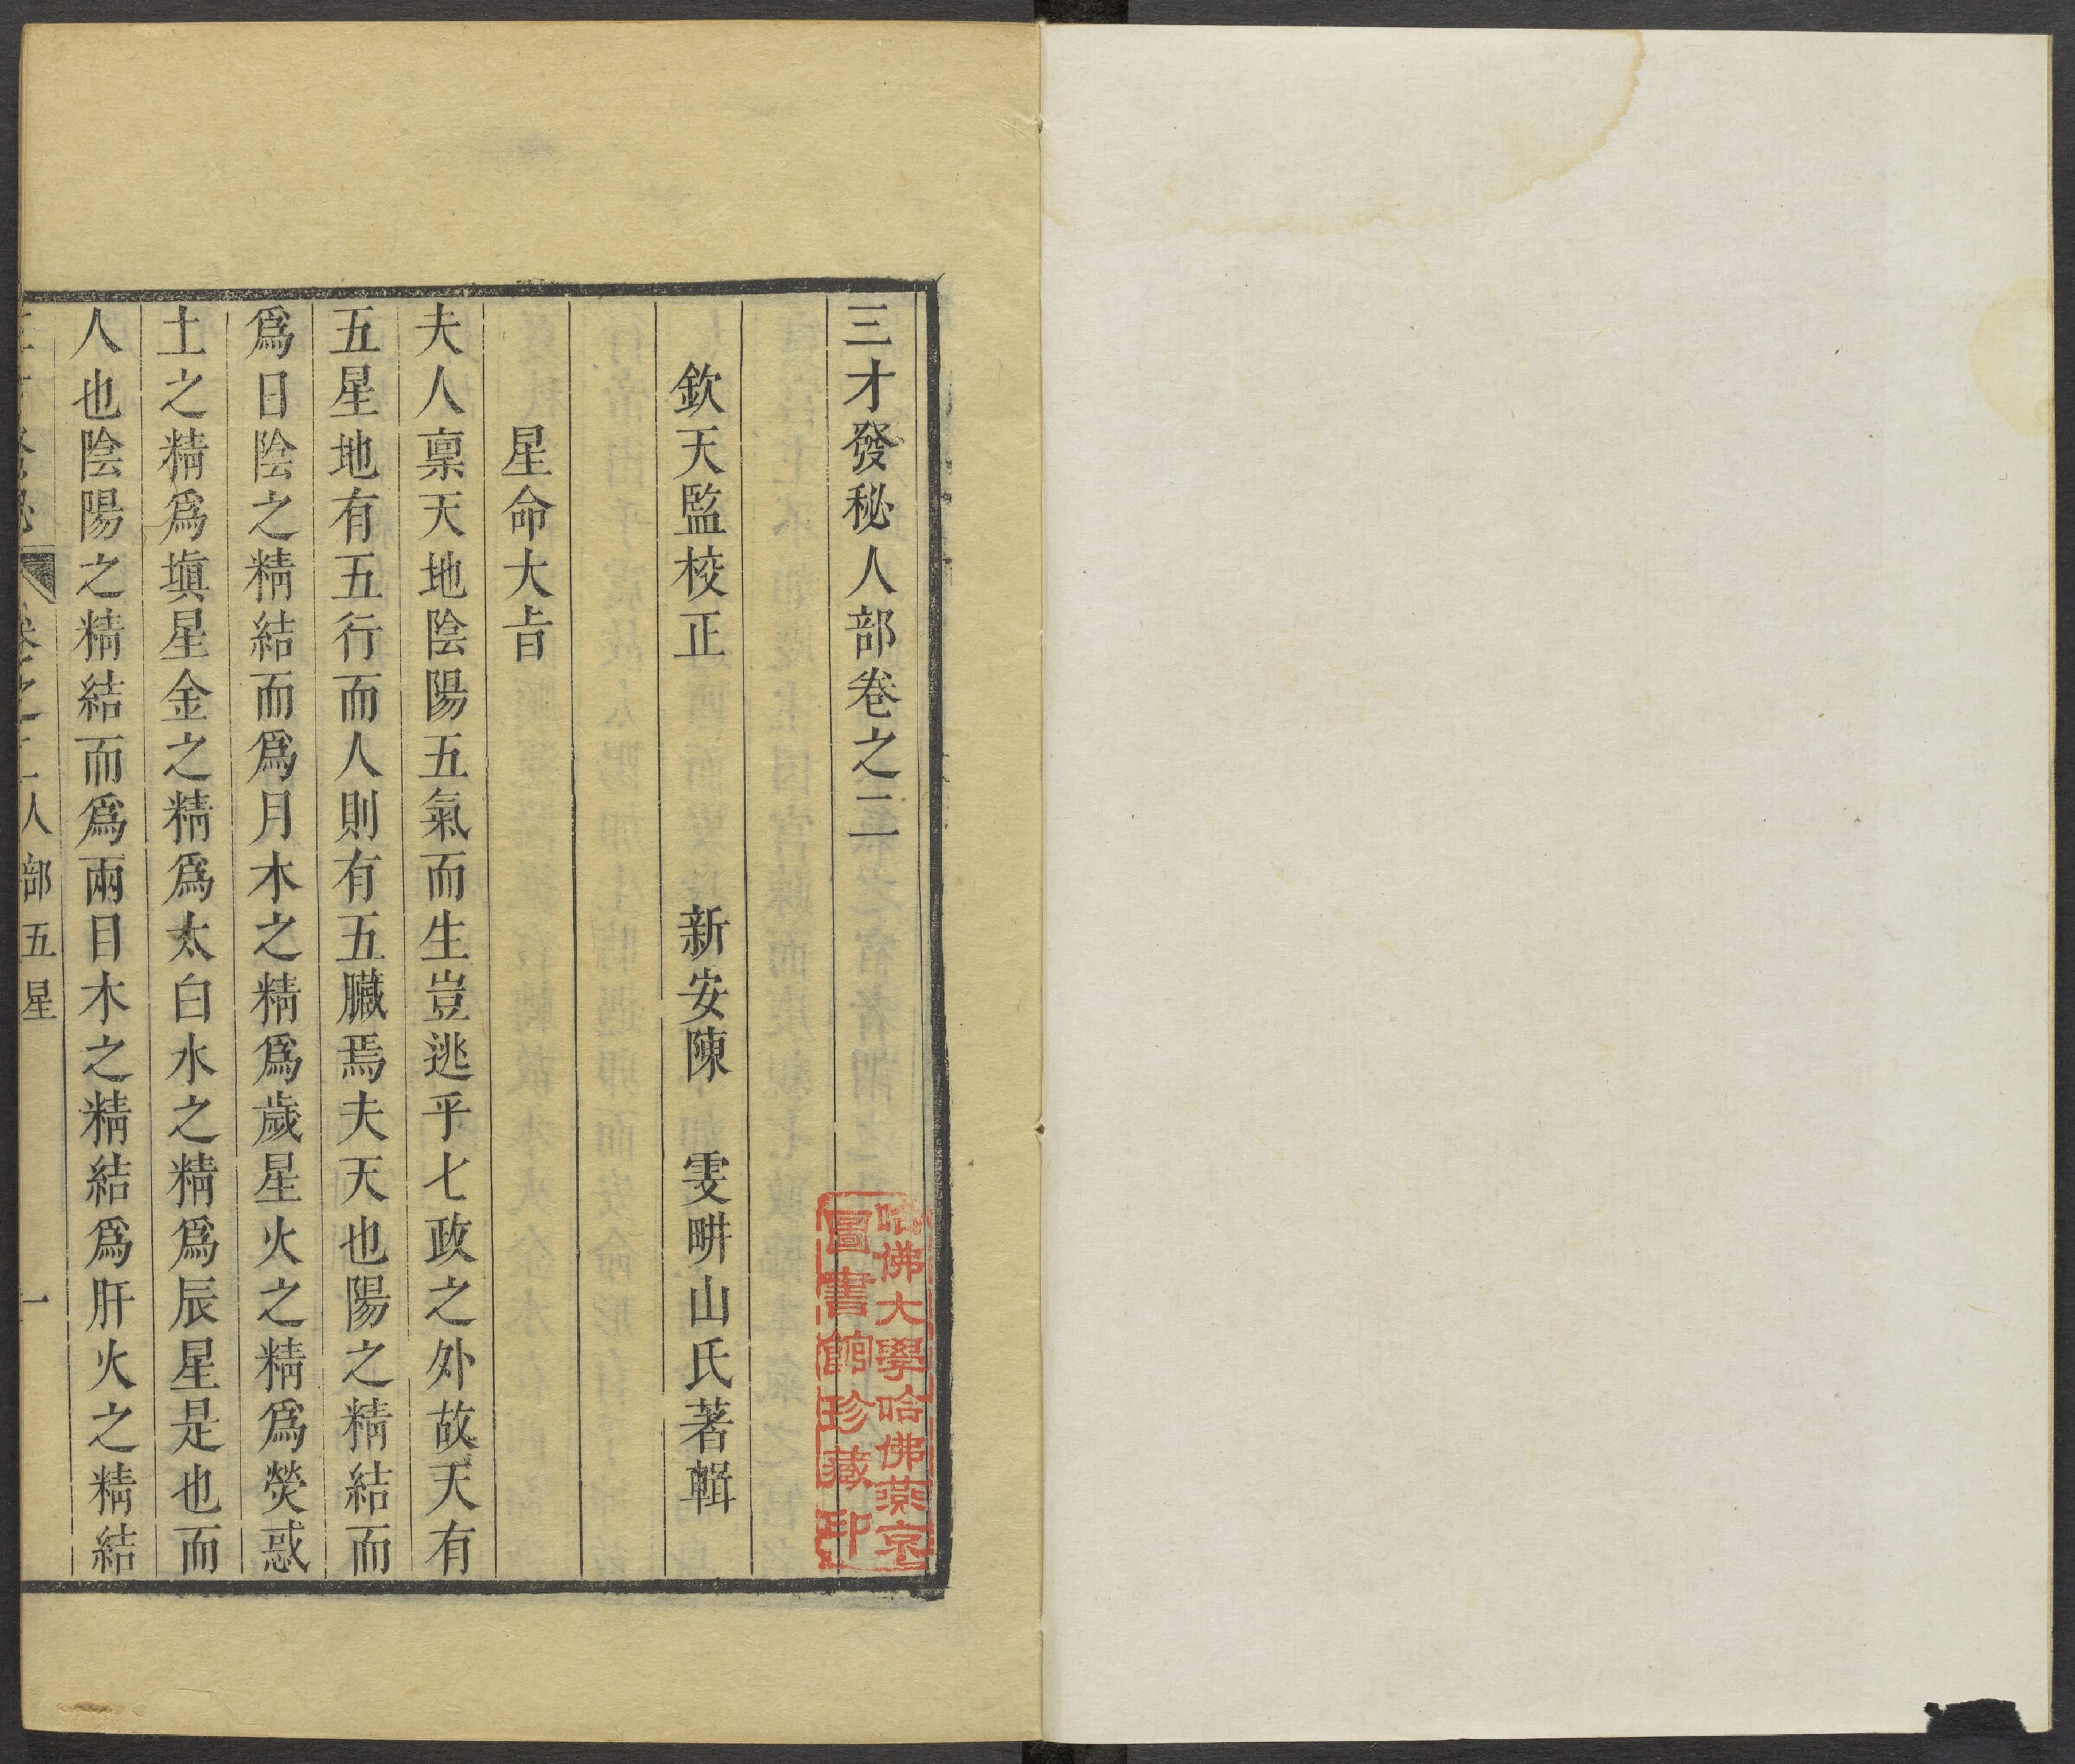 三才發秘人部卷之二
欽天監校正　新安陳　雯畊山氏著輯
星命大㫖
夫人稟天地陰陽五氣而生豈逃乎七政之外故天有
五星地有五行而人則有五臟焉夫天也陽之精結而
爲日陰之精結而爲月木之精爲歲星火之精爲熒惑
土之精爲塡星金之精爲太白水之精爲辰星是也而
人也陰陽之精結而爲兩目木之精結爲肝火之精結
卷之二人部五星　一
哈佛大學哈佛燕京
圖書館珍藏印